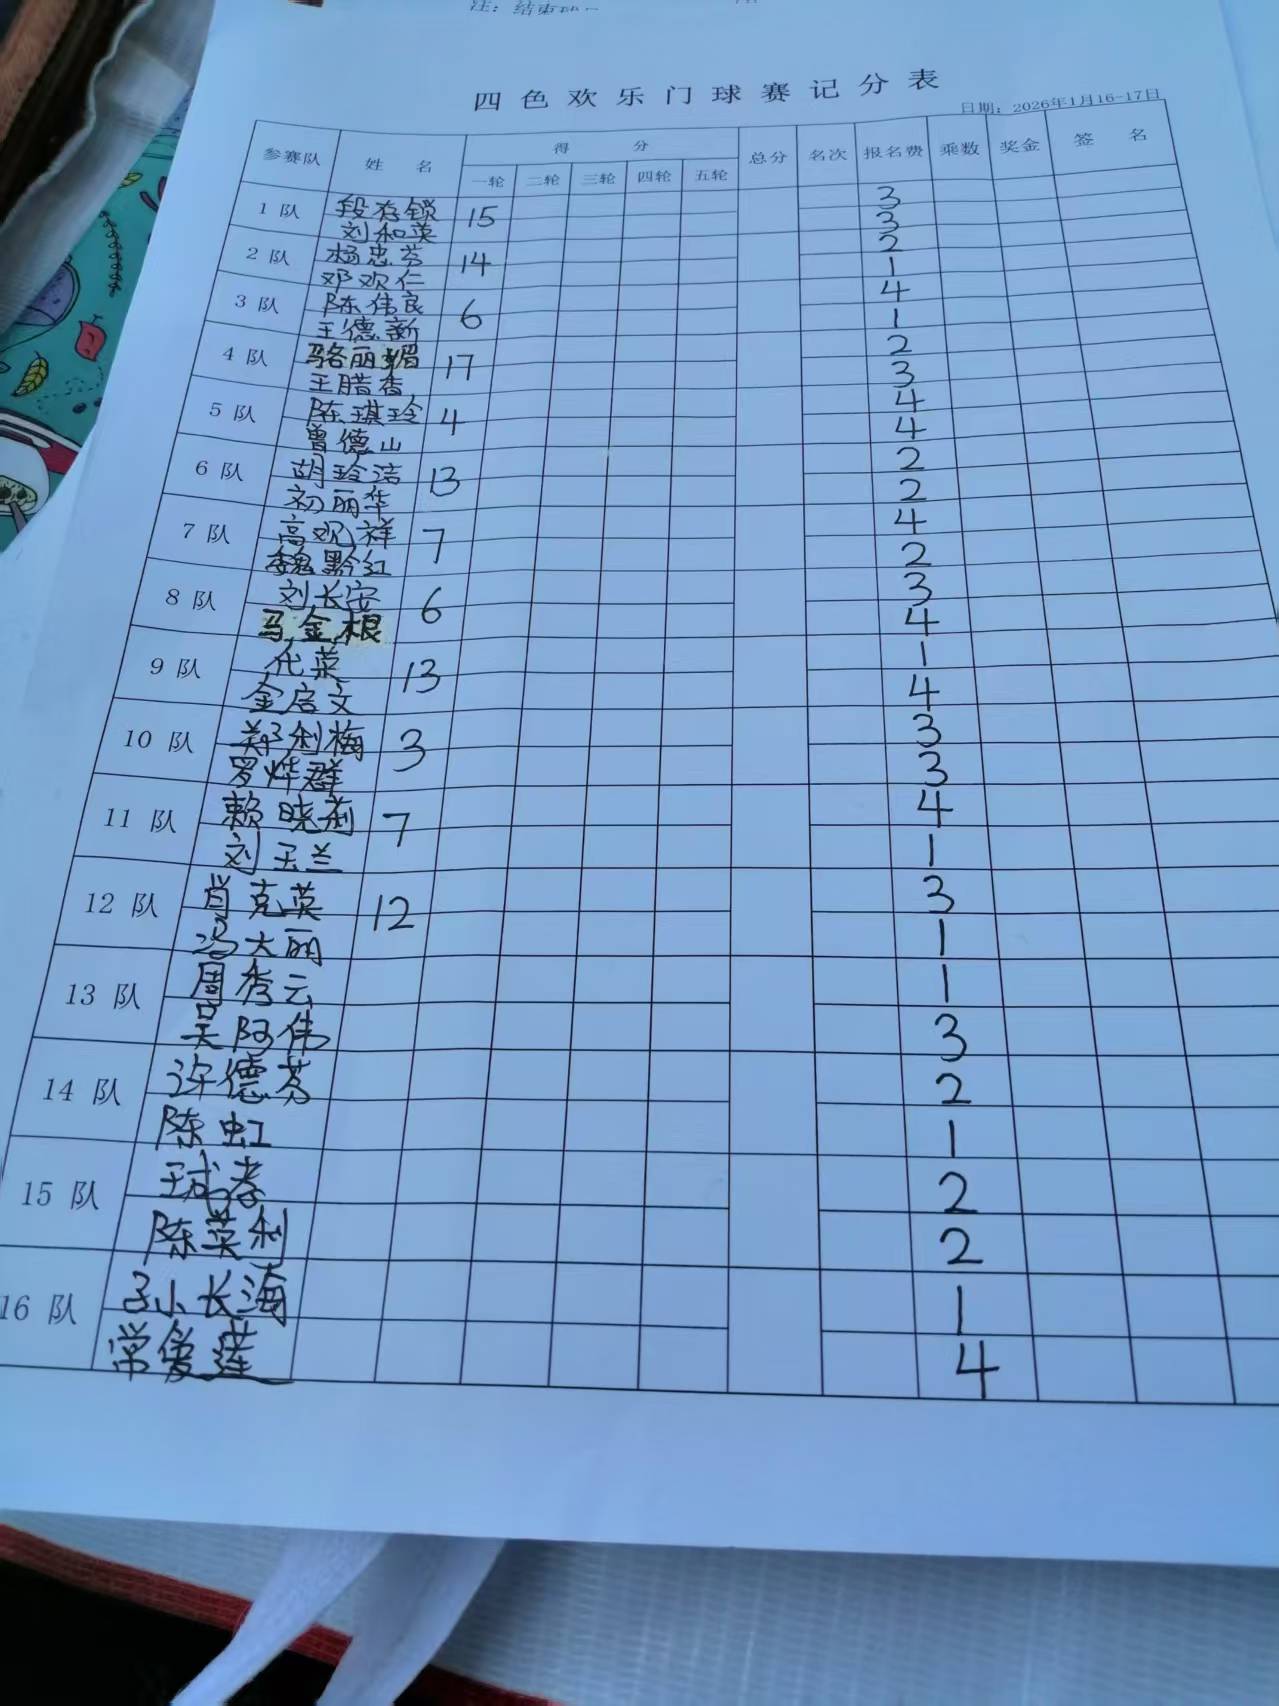 注：结束
四色欢乐门球赛记分表
日期：2026年1月16-17日
参赛队 姓名 得分 总分 名次 报名费 乘数 奖金 签名
一轮 二轮 三轮 四轮 五轮
1 队 段存锁 15 3
刘和英 3
2 队 杨忠芬 14 2
邓欢仁 1
3 队 陈伟良 6 4
王德新 1
4 队 骆丽媚 17 2
王腊香 3
5 队 陈琪玲 4 4
曾德山 4
6 队 胡玲洁 13 2
初丽华 2
7 队 高观祥 7 4
魏黔红 2
8 队 刘长安 6 3
马金根 4
9 队 代菜 13 1
金启文 4
10 队 郑利梅 3 3
罗烨群 3
11 队 赖晓莉 7 4
刘玉兰 1
12 队 肖克英 12 3
冯大丽 1
13 队 周秀云 1
吴阿伟 3
14 队 许德芬 2
陈虹 1
15 队 王成孝 2
陈英利 2
16 队 孙长海 1
常爱莲 4